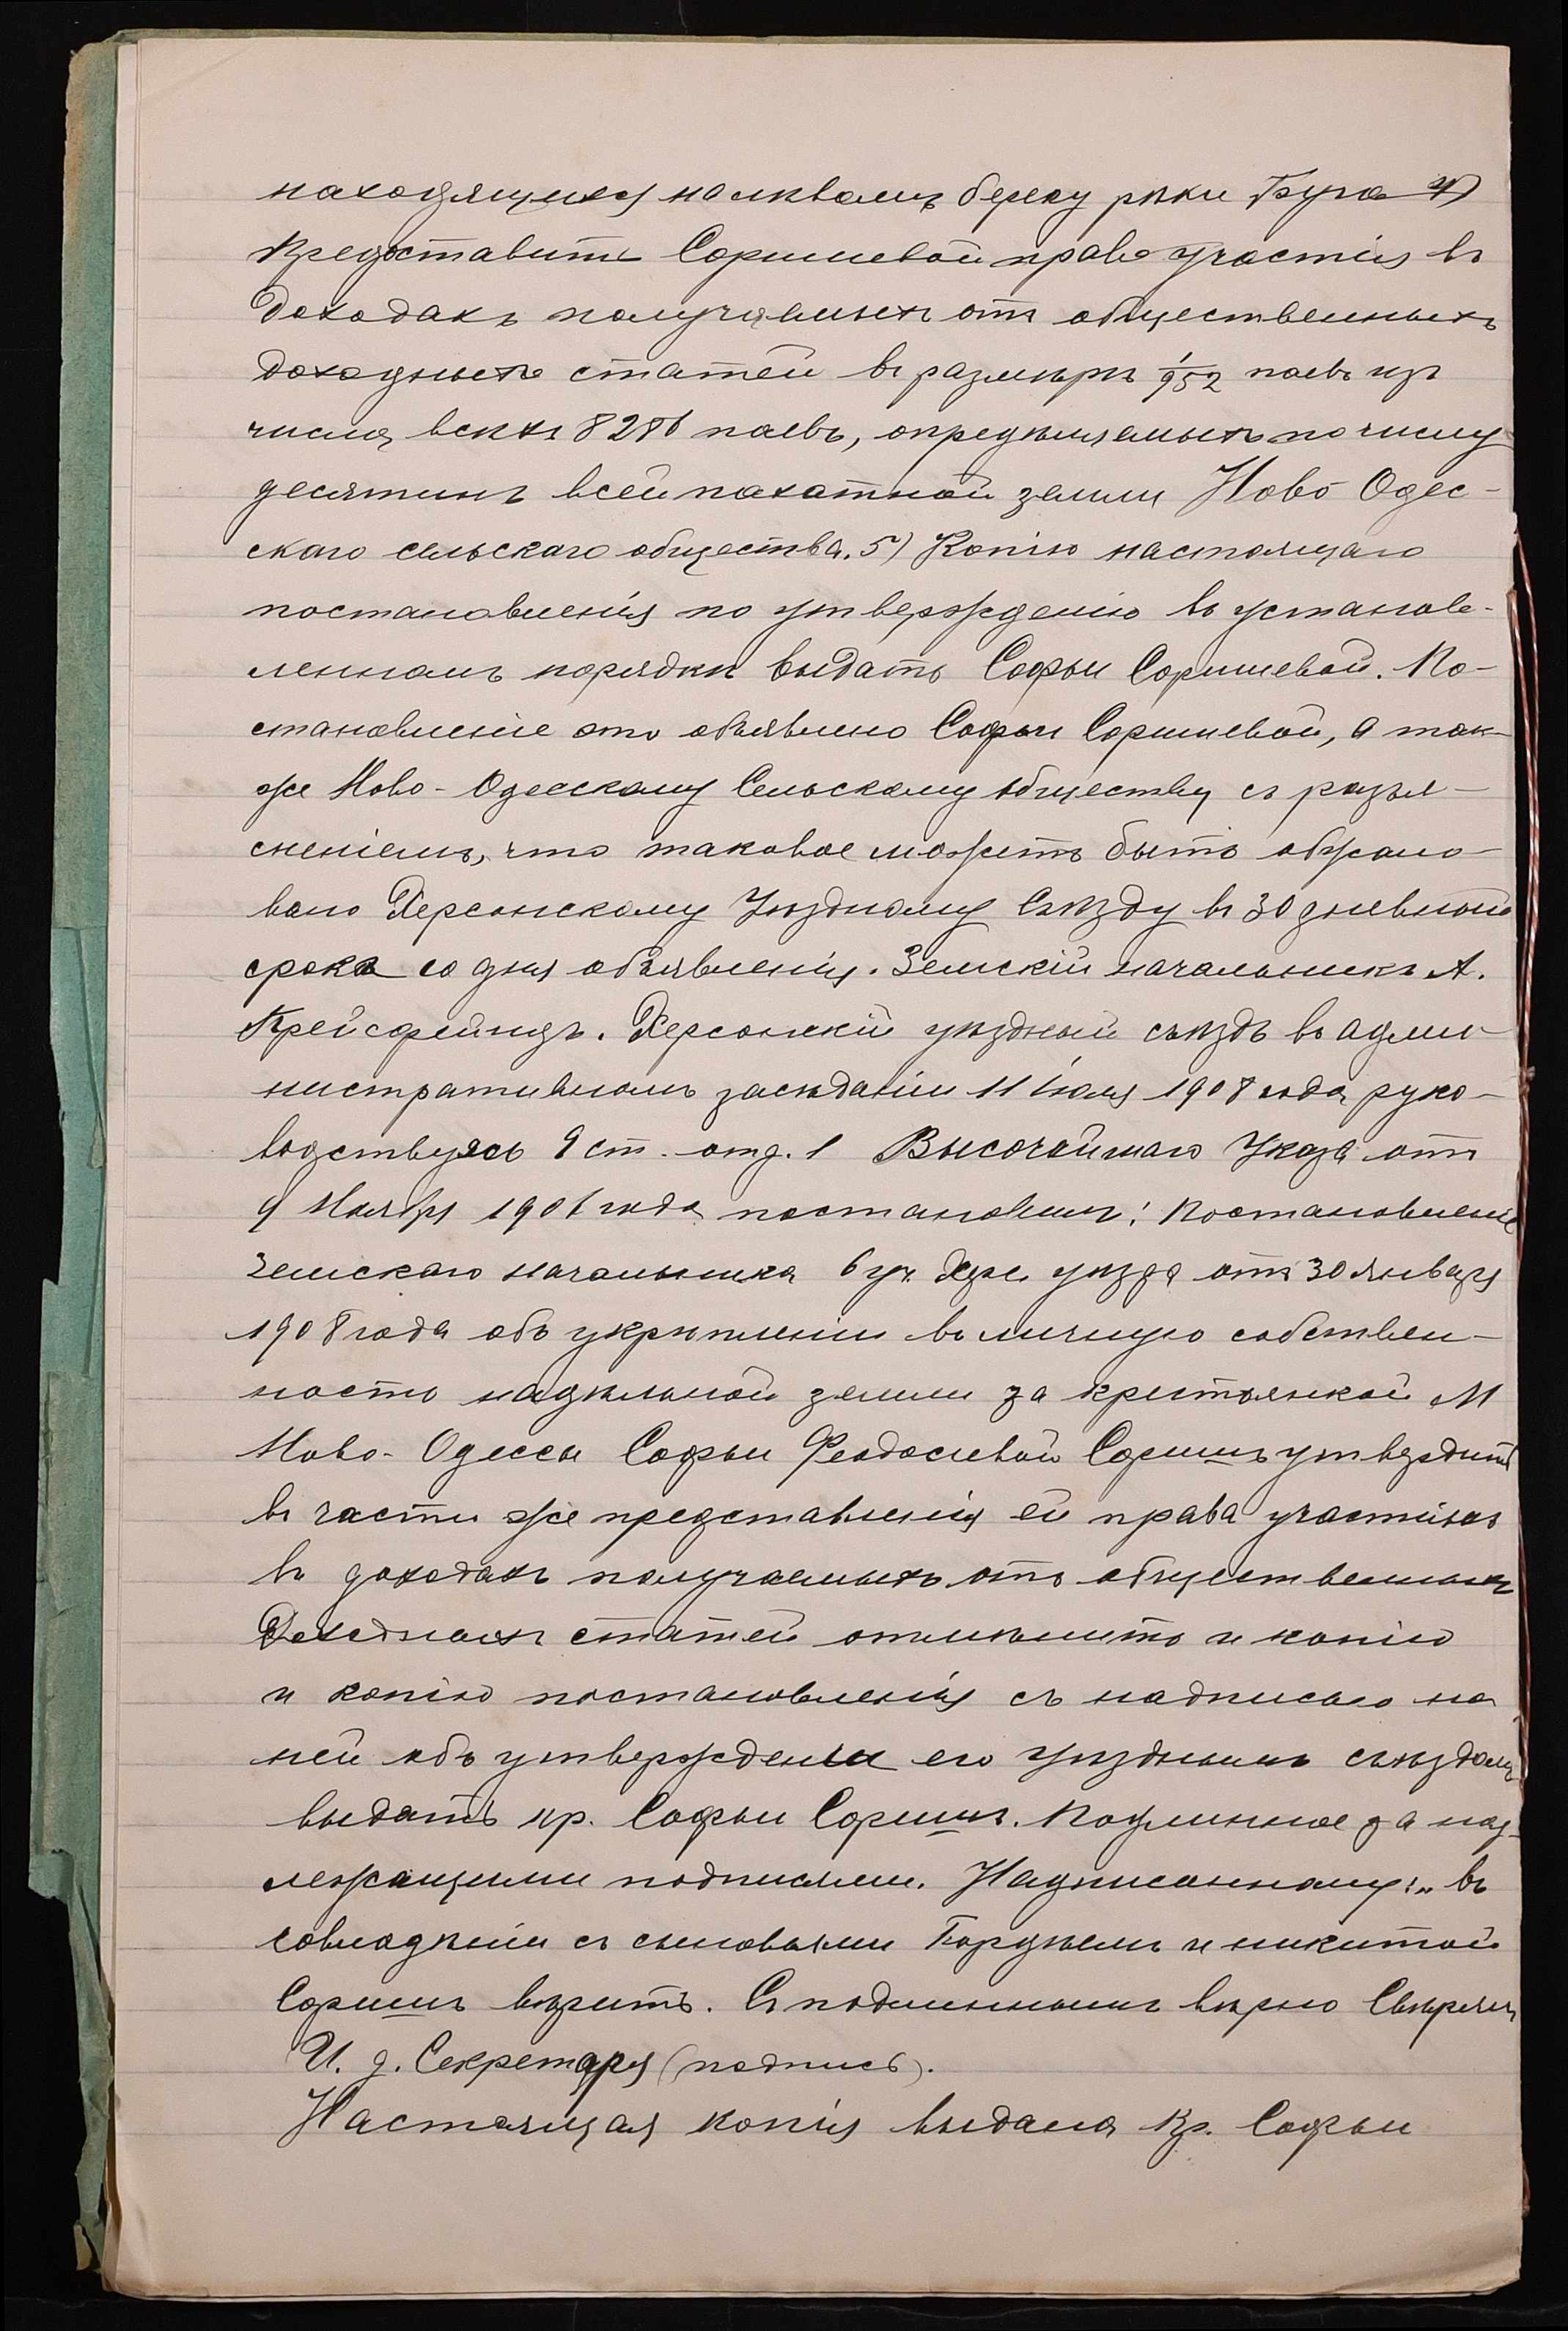 находящихся на лѣвомъ берегу рѣки Буга 4)
Предоставить Соришевой право участія въ
доходахъ получаемыхъ отъ общественныхъ
доходныхъ статей въ размѣрѣ 1/952 паевъ изъ
числа всѣхъ 8286 паевъ, опредѣляемыхъ по числу
десятинъ всей пахатной земли Ново Одес-
скаго сельскаго общества. 5) Копію настоящаго
постановленія по утвержденію въ установ-
ленномъ порядкѣ выдать Софьи Соришевой. По-
становленіе это объявлено Софьи Соришевой, а так-
же Ново-Одесскому Сельскому обществу съ разъя-
сненіемъ, что таковое можетъ быть обжало-
вано Херсонскому Уѣздному Съѣзду въ 30 дневный
срокъ со дня объявленія. Земскій начальникъ А.
Крейсфейндъ. Херсонскій уѣздный съѣздъ въ адми-
нистративномъ засѣданіи 11 Іюля 1908 года, руко-
водствуясь 9 ст. отд. 1 Высочайшаго Указа отъ
9 Ноября 1906 года постановилъ: Постановленіе
Земскаго начальника 6 уч. Хер. уѣзда отъ 30 января
1908 года объ укрѣпленіи въ личную собствен-
ность надѣльной земли за крестьянкой М
Ново-Одессы Софьи Феодосіевой Соришъ утвердить
въ части же представленія ей права участія
въ доходахъ получаемыхъ отъ общественныхъ
Доходныхъ статей отмѣнить и копію
и копію постановленія съ надписью на
ней объ утвержденіи его Уѣзднымъ съѣздомъ
выдать кр. Софьи Соришъ. Подлинное за над-
лежащими подписями. Надписанному: „въ
совладѣніи съ сыновьями Гордѣемъ и никитой
Соришъ вѣрить. Съ подлиннымъ вѣрно Свѣрялъ
И. д. Секретаря (подпись).
Настоящая копія выдана кр. Софьи